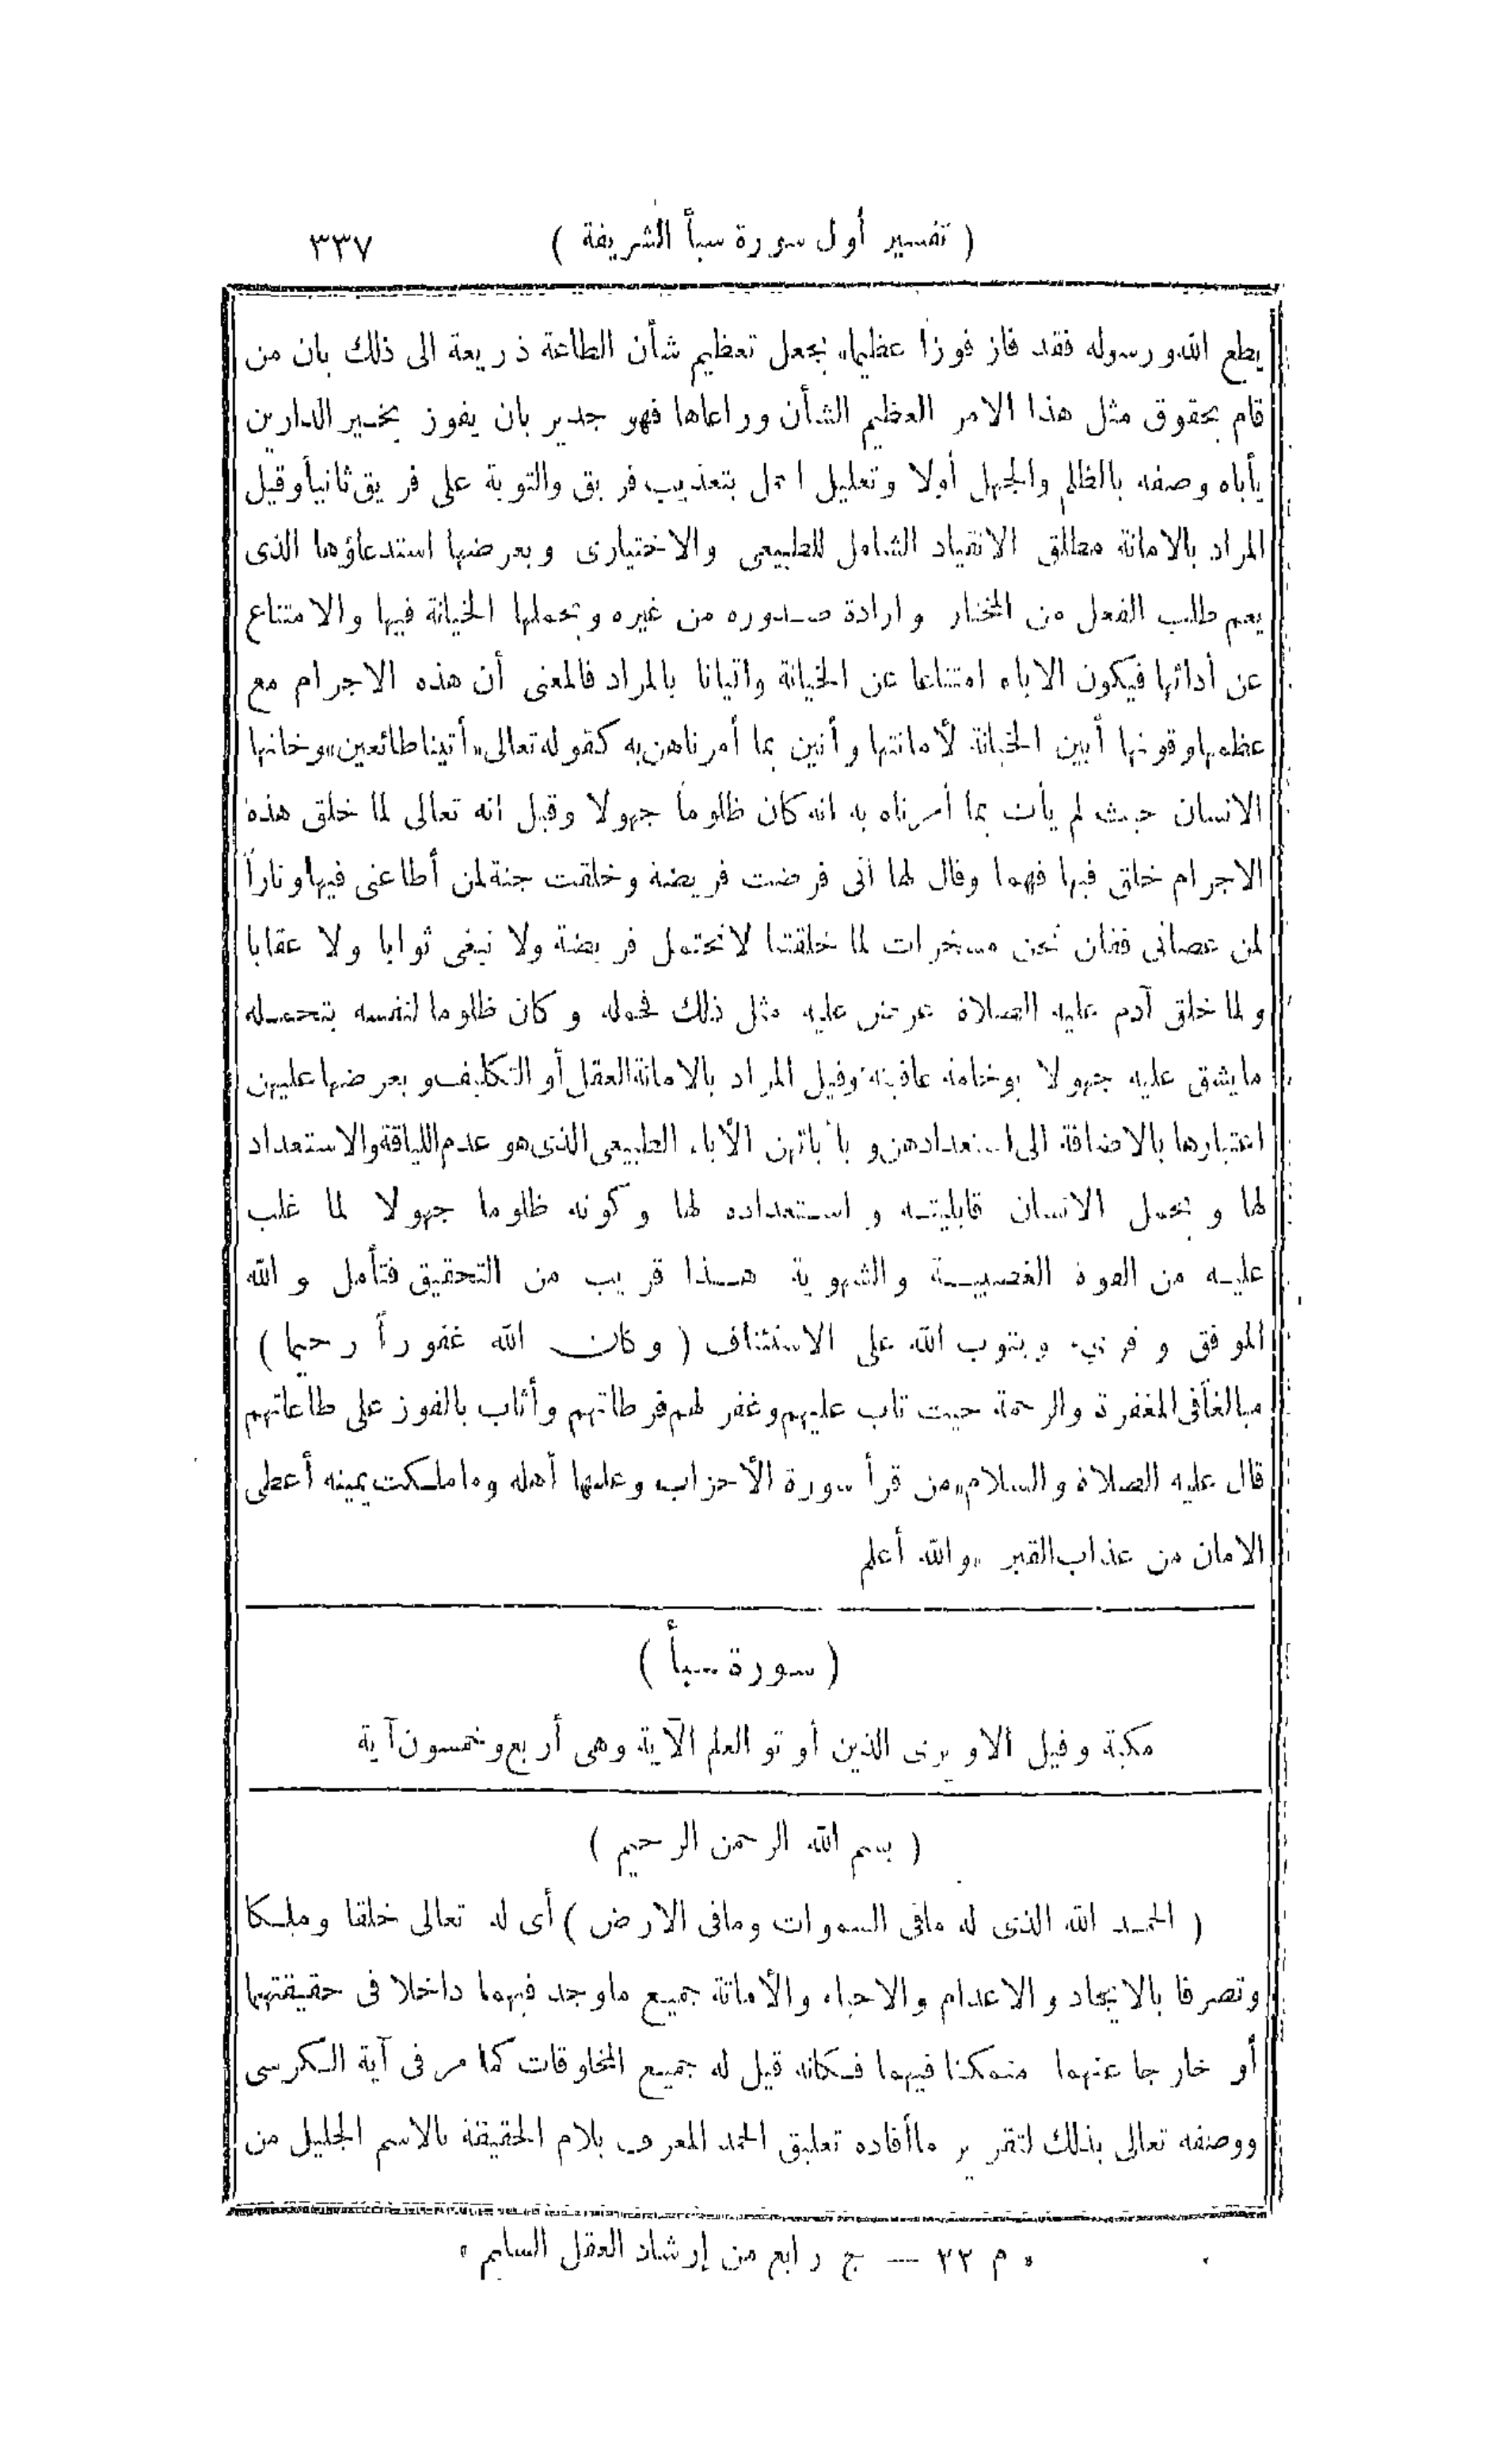 ( تفسير أول سورة سبأ الشريفة ) ٣٣٧
يطع الله ورسوله فقد فاز فوزا عظيما» بجعل تعظيم شأن الطاعة ذريعة الى ذلك بان من
قام بحقوق مثل هذا الامر العظيم الشأن وراعاها فهو جدير بان يفوز بخير الدارين
يأباه وصفه بالظلم والجهل أولا وتعليل الحمل بتعذيب فريق والتوبة على فريق ثانياً وقيل
المراد بالامانة مطلق الانقياد الشامل للطبيعى والاختيارى وبعرضها استدعاؤها الذى
يعم طلب الفعل من المختار وارادة صدوره من غيره وبحملها الخيانة فيها والامتناع
عن أدائها فيكون الاباء امتناعا عن الخيانة واتيانا بالمراد فالمعنى أن هذه الاجرام مع
عظمها وقوتها أبين الخيانة لأمانتها وأتين بما أمرناهن به كقوله تعالى «أتينا طائعين» وخانها
الانسان حيث لم يأت بما أمرناه به انه كان ظلوماً جهولا وقيل انه تعالى لما خلق هذه
الاجرام خلق فيها فهما وقال لها انى فرضت فريضة وخلقت جنة لمن أطاعنى فيها وناراً
لمن عصانى فقلن نحن مسخرات لما خلقتنا لا نحتمل فريضة ولا نبغى ثوابا ولا عقابا
ولما خلق آدم عليه الصلاة عرض عليه مثل ذلك فحمله وكان ظلوما لنفسه بتحمله
ما يشق عليه جهولا بوخامة عاقبته وقيل المراد بالامانة العقل أو التكليف وبعرضها عليهن
اعتبارها بالاضافة الى استعدادهن وبابائهن الأباء الطبيعى الذى هو عدم اللياقة والاستعداد
لها وبحمل الانسان قابليته واستعداده لها وكونه ظلوما جهولا لما غلب
عليه من القوة الغضبية والشهوية هذا قريب من التحقيق فتأمل والله
الموفق وقرىء ويتوب الله على الاستئناف ( وكان الله غفوراً رحيما )
مبالغاً فى المغفرة والرحمة حيث تاب عليهم وغفر لهم فرطاتهم وأثاب بالفوز على طاعاتهم
قال عليه الصلاة والسلام «من قرأ سورة الأحزاب وعلمها أهله وما ملكت يمينه أعطى
الامان من عذاب القبر» والله أعلم
( سورة سبأ )
مكية وقيل الا ويرى الذين أوتو العلم الآية وهى أربع وخمسون آية
( بسم الله الرحمن الرحيم )
( الحمد الله الذى له مافى السموات ومافى الارض ) أى له تعالى خلقا وملكا
وتصرفا بالايجاد والاعدام والاحياء والأماتة جميع ماوجد فيهما داخلا فى حقيقتهما
أو خارجا عنهما متمكنا فيهما فكانه قيل له جميع المخلوقات كما مر فى آية الكرسى
ووصفه تعالى بذلك لتقرير ماأفاده تعليق الحمد المعرف بلام الحقيقة بالاسم الجليل من
« م ٢٢ — ج رابع من إرشاد العقل السليم »